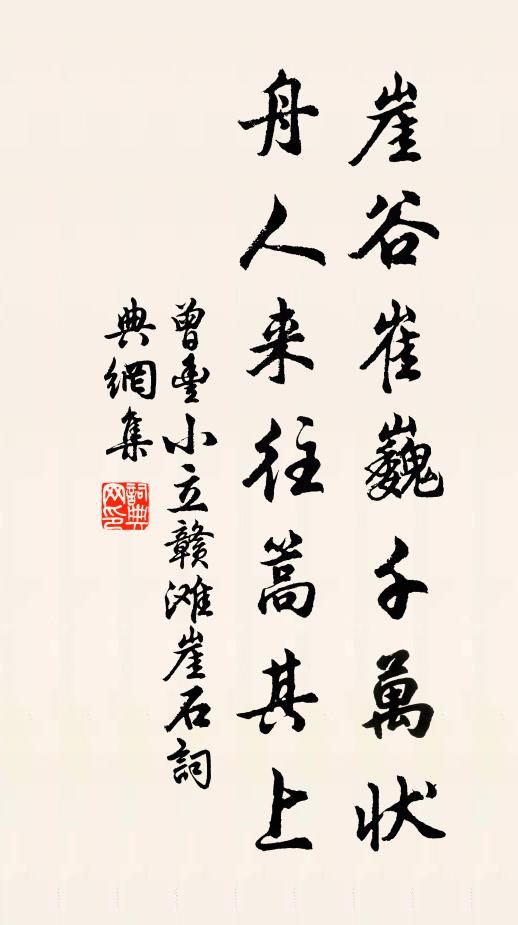 崖谷崔巍千萬狀
舟人来往篙其上
曾豊小立赣滩崖石詞
典網集
詞典网印